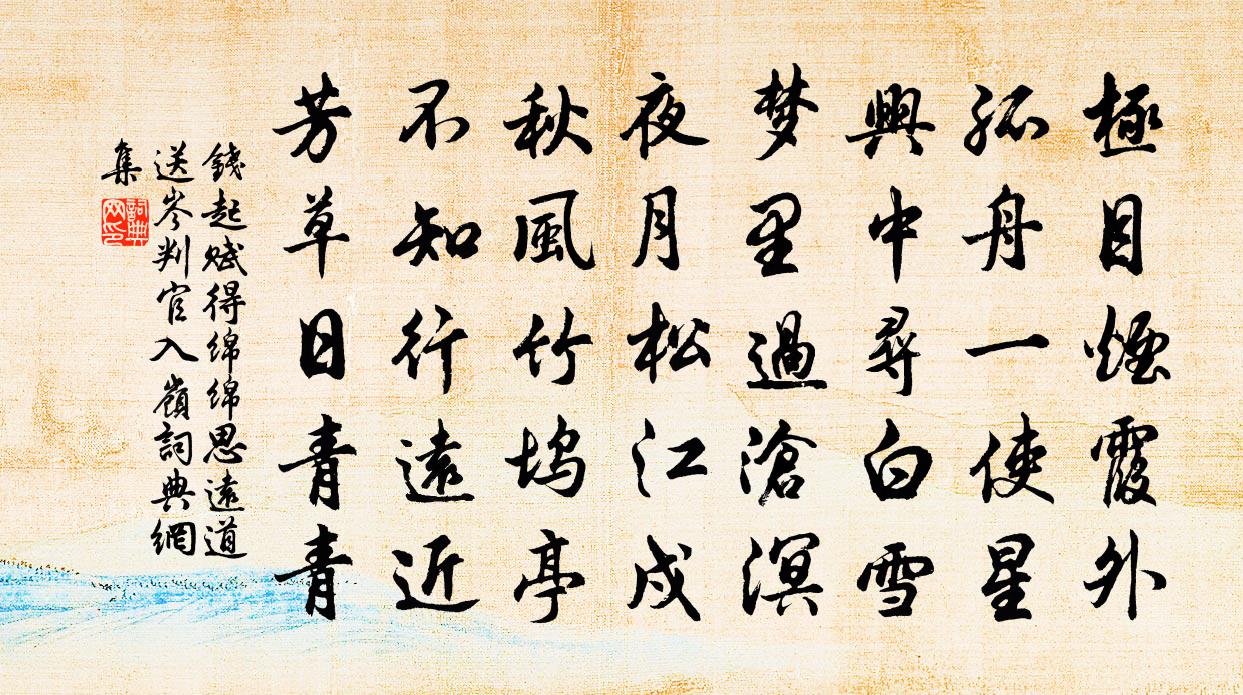 極目煙霞外
孤舟一使星
興中尋白雪
梦里過滄溟
夜月松江戍
秋風竹坞亭
不知行遠近
芳草日青青
錢起赋得绵绵思遠道
送岑判官入嶺詞典網
集
詞典
网印